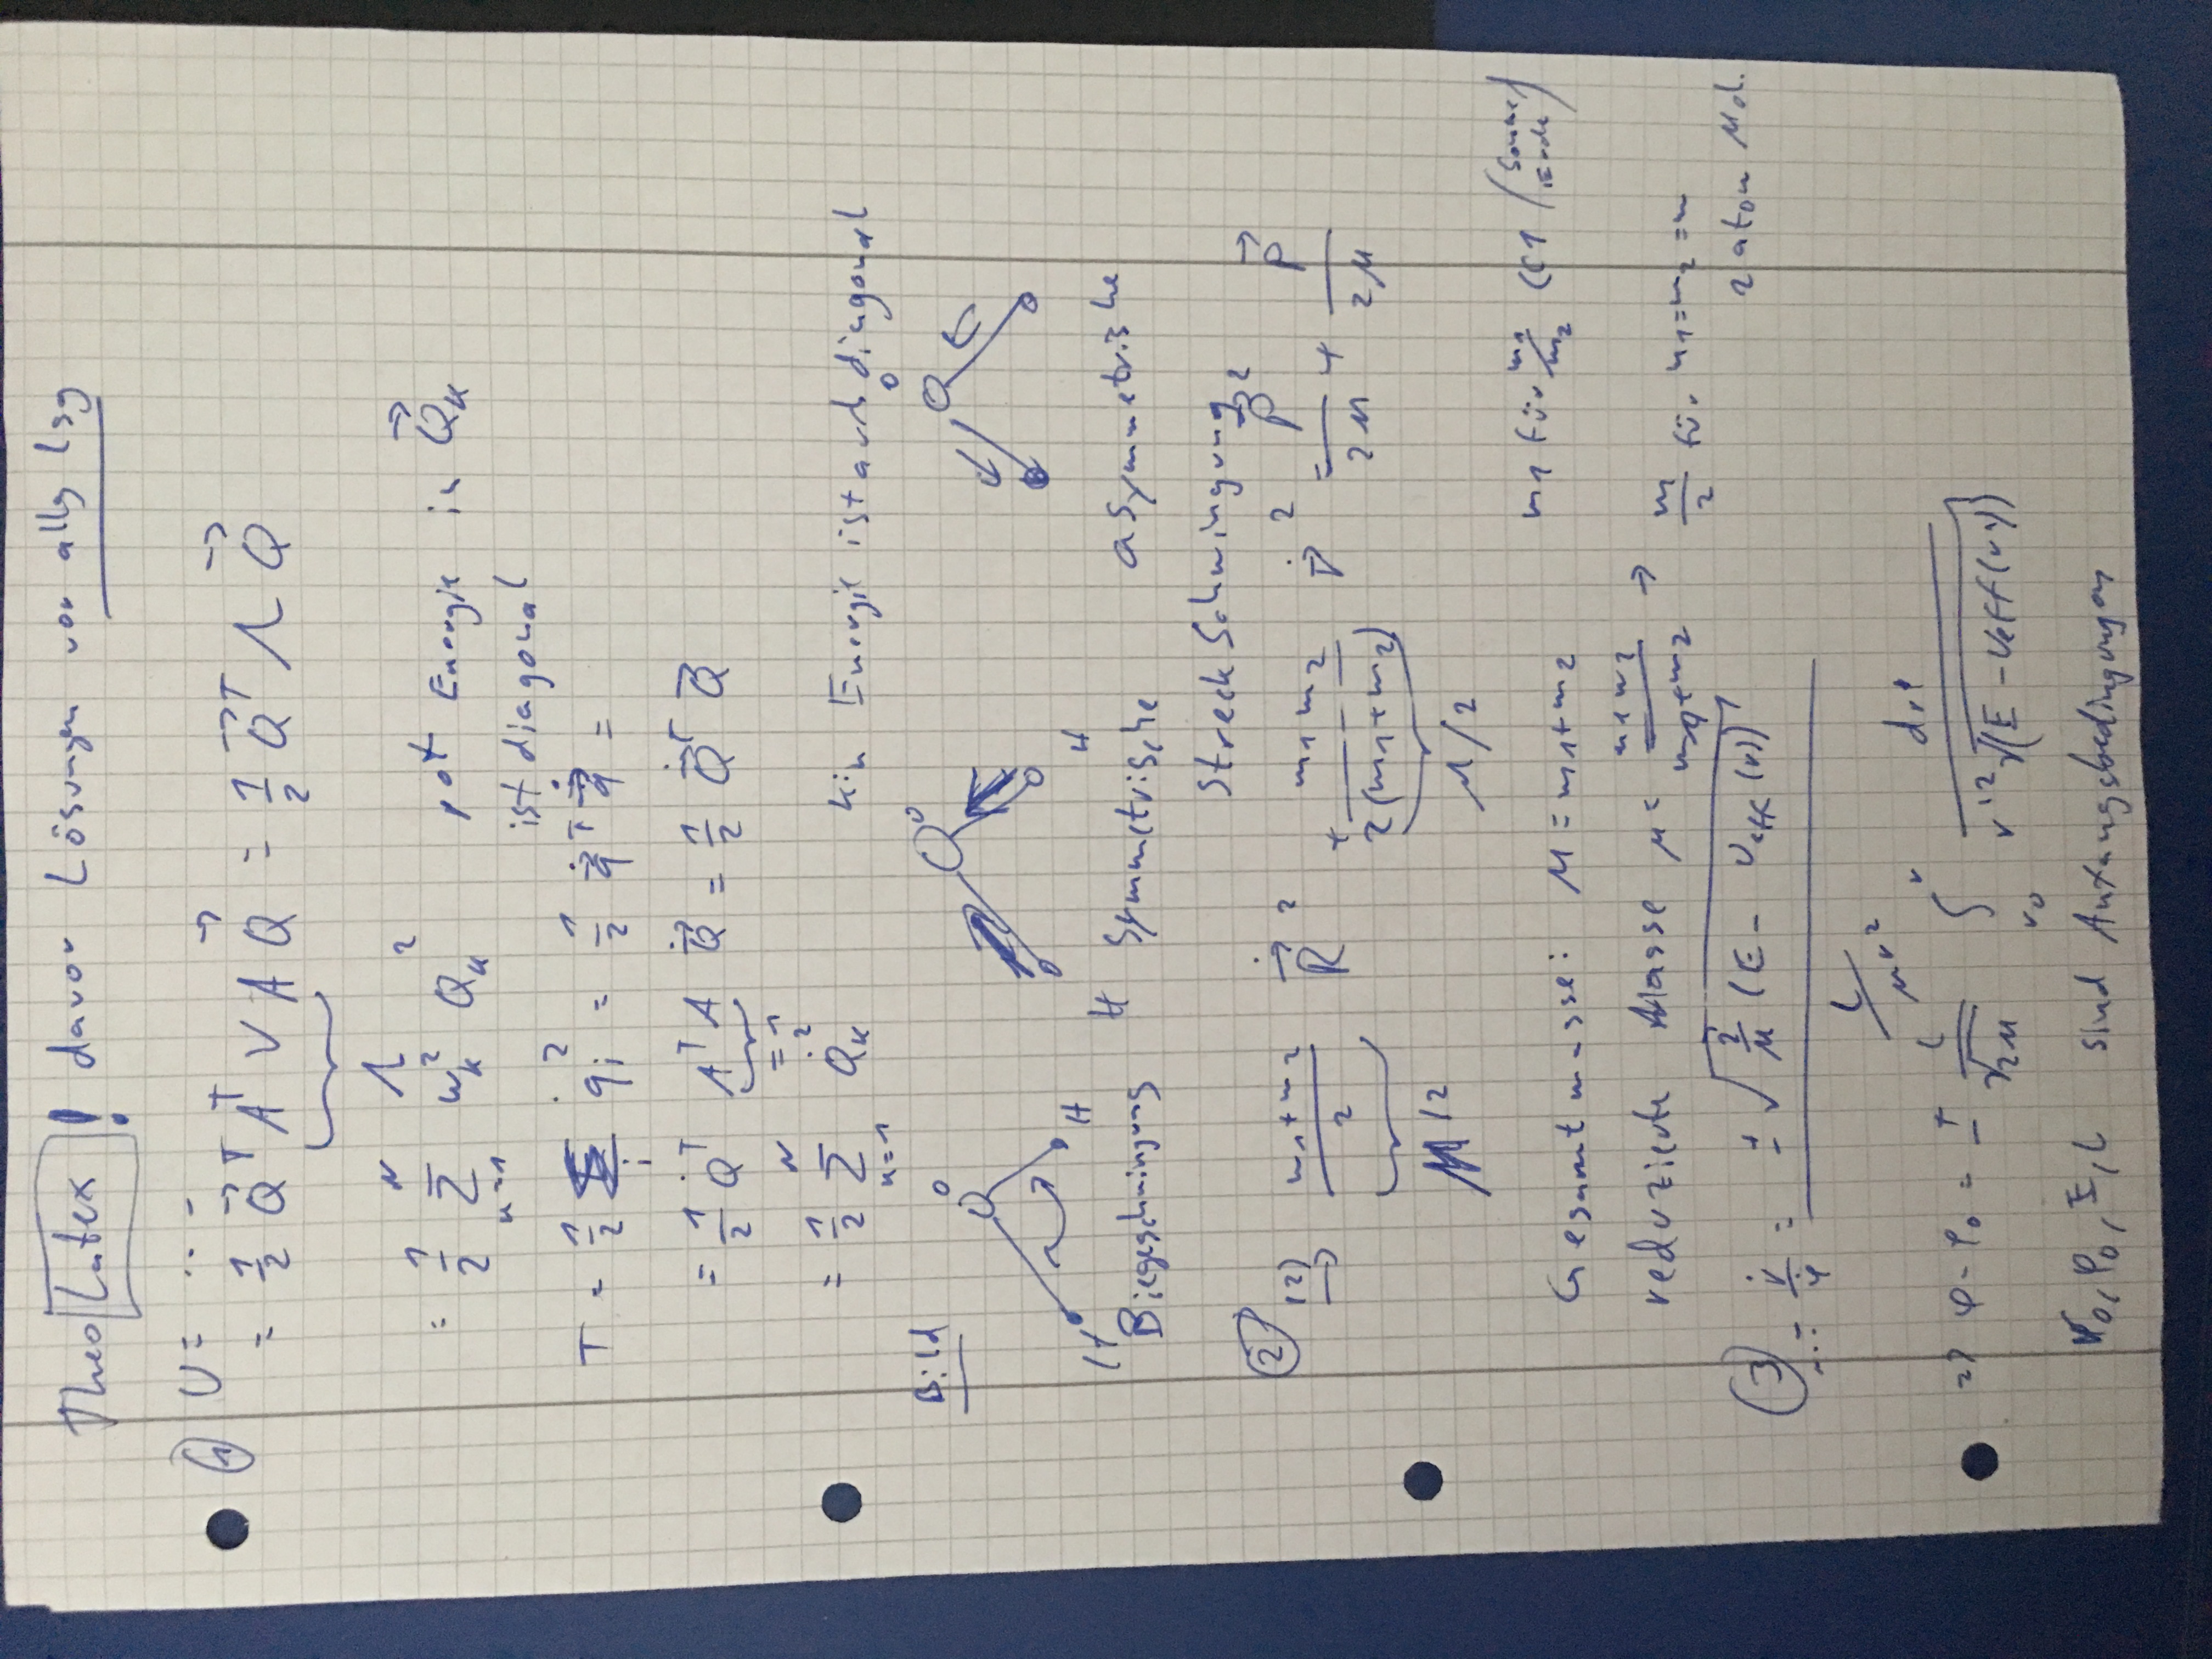 Theo Latex ! davor Lösungen vor alles Lsg
① U = ...
= 1/2 Q⃗^T A^T V A Q⃗ = 1/2 Q⃗^T Λ Q⃗
Λ
= 1/2 Σ_{k=1}^N ω_k^2 Q_k^2 pot Energie in Q⃗_k
ist diagonal
T = 1/2 Σ_i q̇_i^2 = 1/2 q⃗̇^T q⃗̇ =
= 1/2 Q̇^T A^T A Q⃗̇ = 1/2 Q⃗̇^T Q⃗
= 1
= 1/2 Σ_{k=1}^N Q̇_k^2 kin Energie ist auch diagonal
Bild
O O O
H H H H
Biegeschwingung Symmetrische asymmetrische
Streckschwingung
② (2)⇒ (m1+m2)/2 R⃗̇^2 + m1 m2/(2(m1+m2)) r⃗̇^2 = P⃗^2/2M + p⃗/2μ
M/2 μ/2
m1 für m1/m2 << 1 (Sonne/Erde)
Gesamtmasse: M = m1+m2
reduzierte Masse μ = m1m2/(m1+m2) → m/2 für m1=m2=m
2 atom Mol.
③ ... ṙ/φ̇ = ±√(2/μ (E - U_eff(r))) / (L/μr^2)
=> φ - φ0 = ± L/√2μ ∫_{r0}^{r} dr'/(r'^2 √(E - U_eff(r')))
r0, φ0, E, L sind Anfangsbedingungen